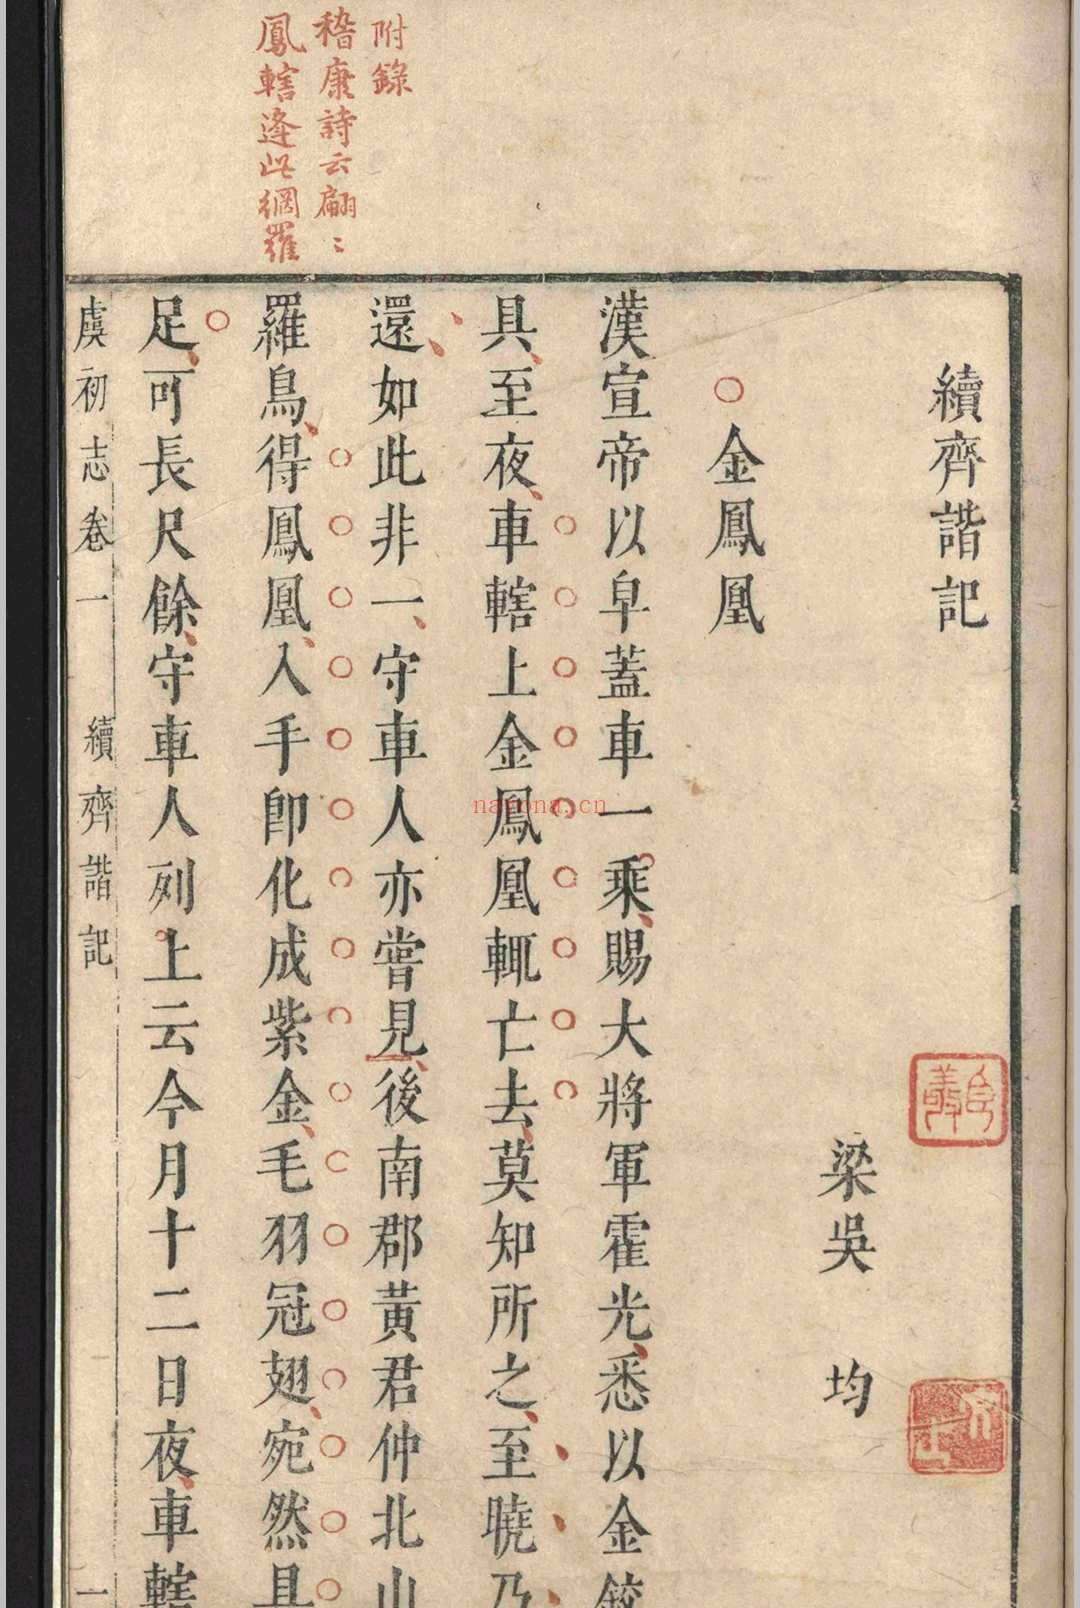 附錄
嵇康詩云翩〻
鳳轄逢此網羅
續齊諧記
梁吳均
○金鳳凰
漢宣帝以皁蓋車一乘賜大將軍霍光悉以金鉸
具至夜車轄上金鳳凰輒亡去莫知所之至曉乃
還如此非一守車人亦嘗見後南郡黃君仲北山
羅鳥得鳳凰入手卽化成紫金毛羽冠翅宛然具
足可長尺餘守車人列上云今月十二日夜車轄
虞初志卷一 續齊諧記 一
nayona.cn